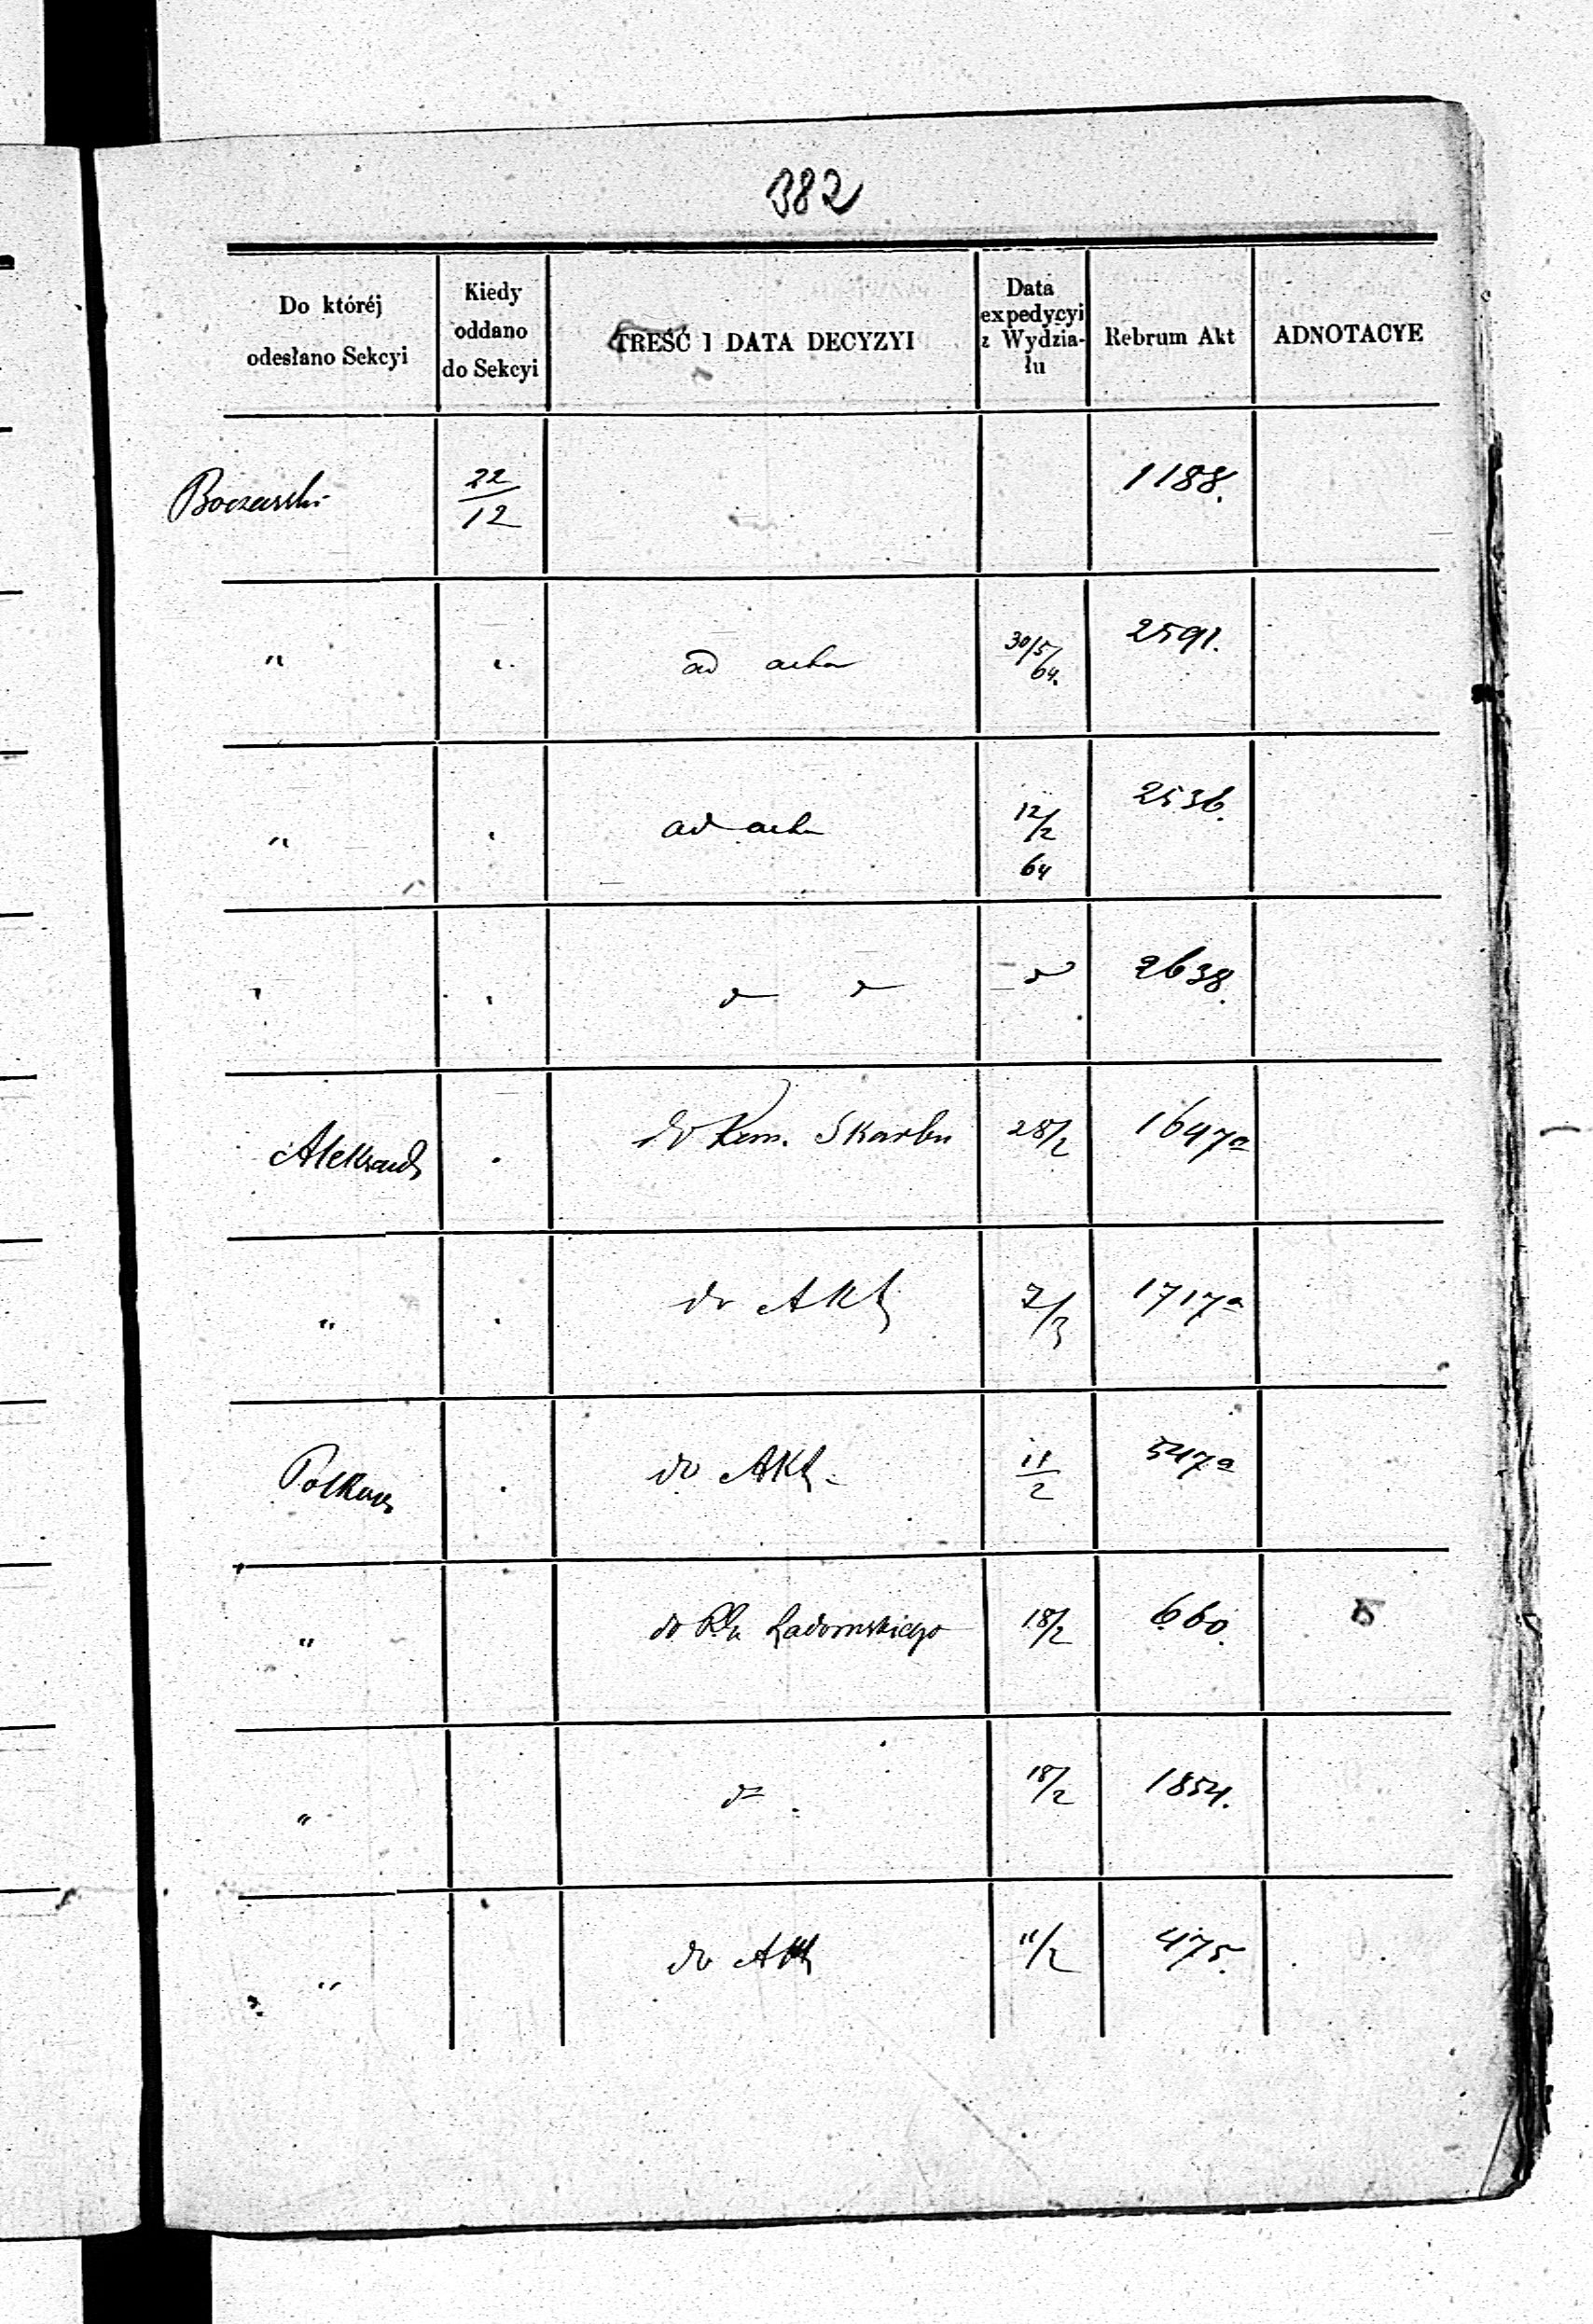 382
Do któréj odesłano Sekcyi
Kiedy oddano do Sekcyi
TREŚĆ I DATA DECYZYI
Data expedycyi z Wydziału
Rebrum Akt
ADNOTACYE
Boczarski 22/12 1188.
" " ad acta 30/5/64. 2591.
" " ad acta 12/2 64 2536.
" " d d d 2638.
Aleksand " do Kom. Skarbu 28/2 1647a
" " do Akt 7/3 1717a
" do Akt 11/2 547a
" do Radomskiego 18/2 660.
" d 18/2 1854.
" do Akt 11/2 475.